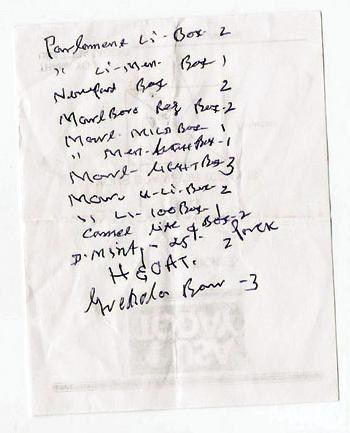 Parlament Li- Box- 2
" Li-Men- Box 1
Newport Box 2
Marlboro Reg Box-2
Marl- Mild Box- 1
" Men-Light Box-1
Marl- Light Box 3
Marl U-Li-Box-2
" Li- 100 Box 1
Camel Lite Box-2
D-Mint - 25¢- 2
HEOAT.
Bar -3